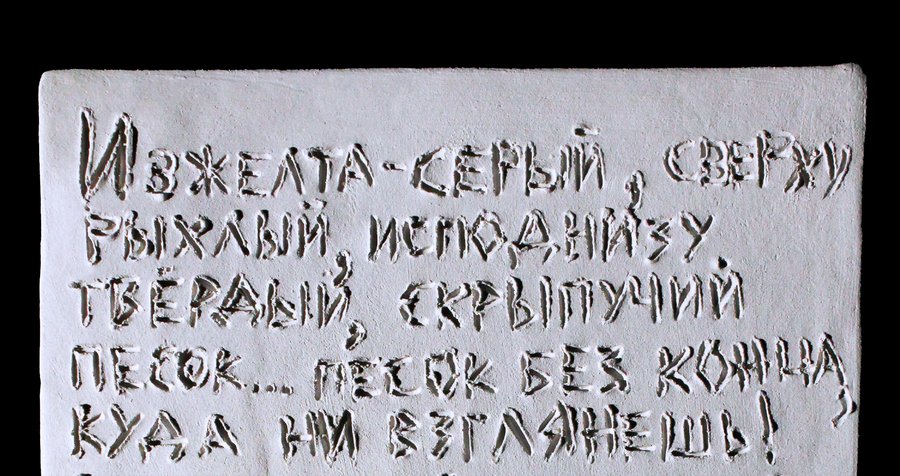 Изжелта-серый, сверху
рыхлый, исподнизу
твёрдый, скрыпучий
песок... песок без конца,
куда ни взглянешь!